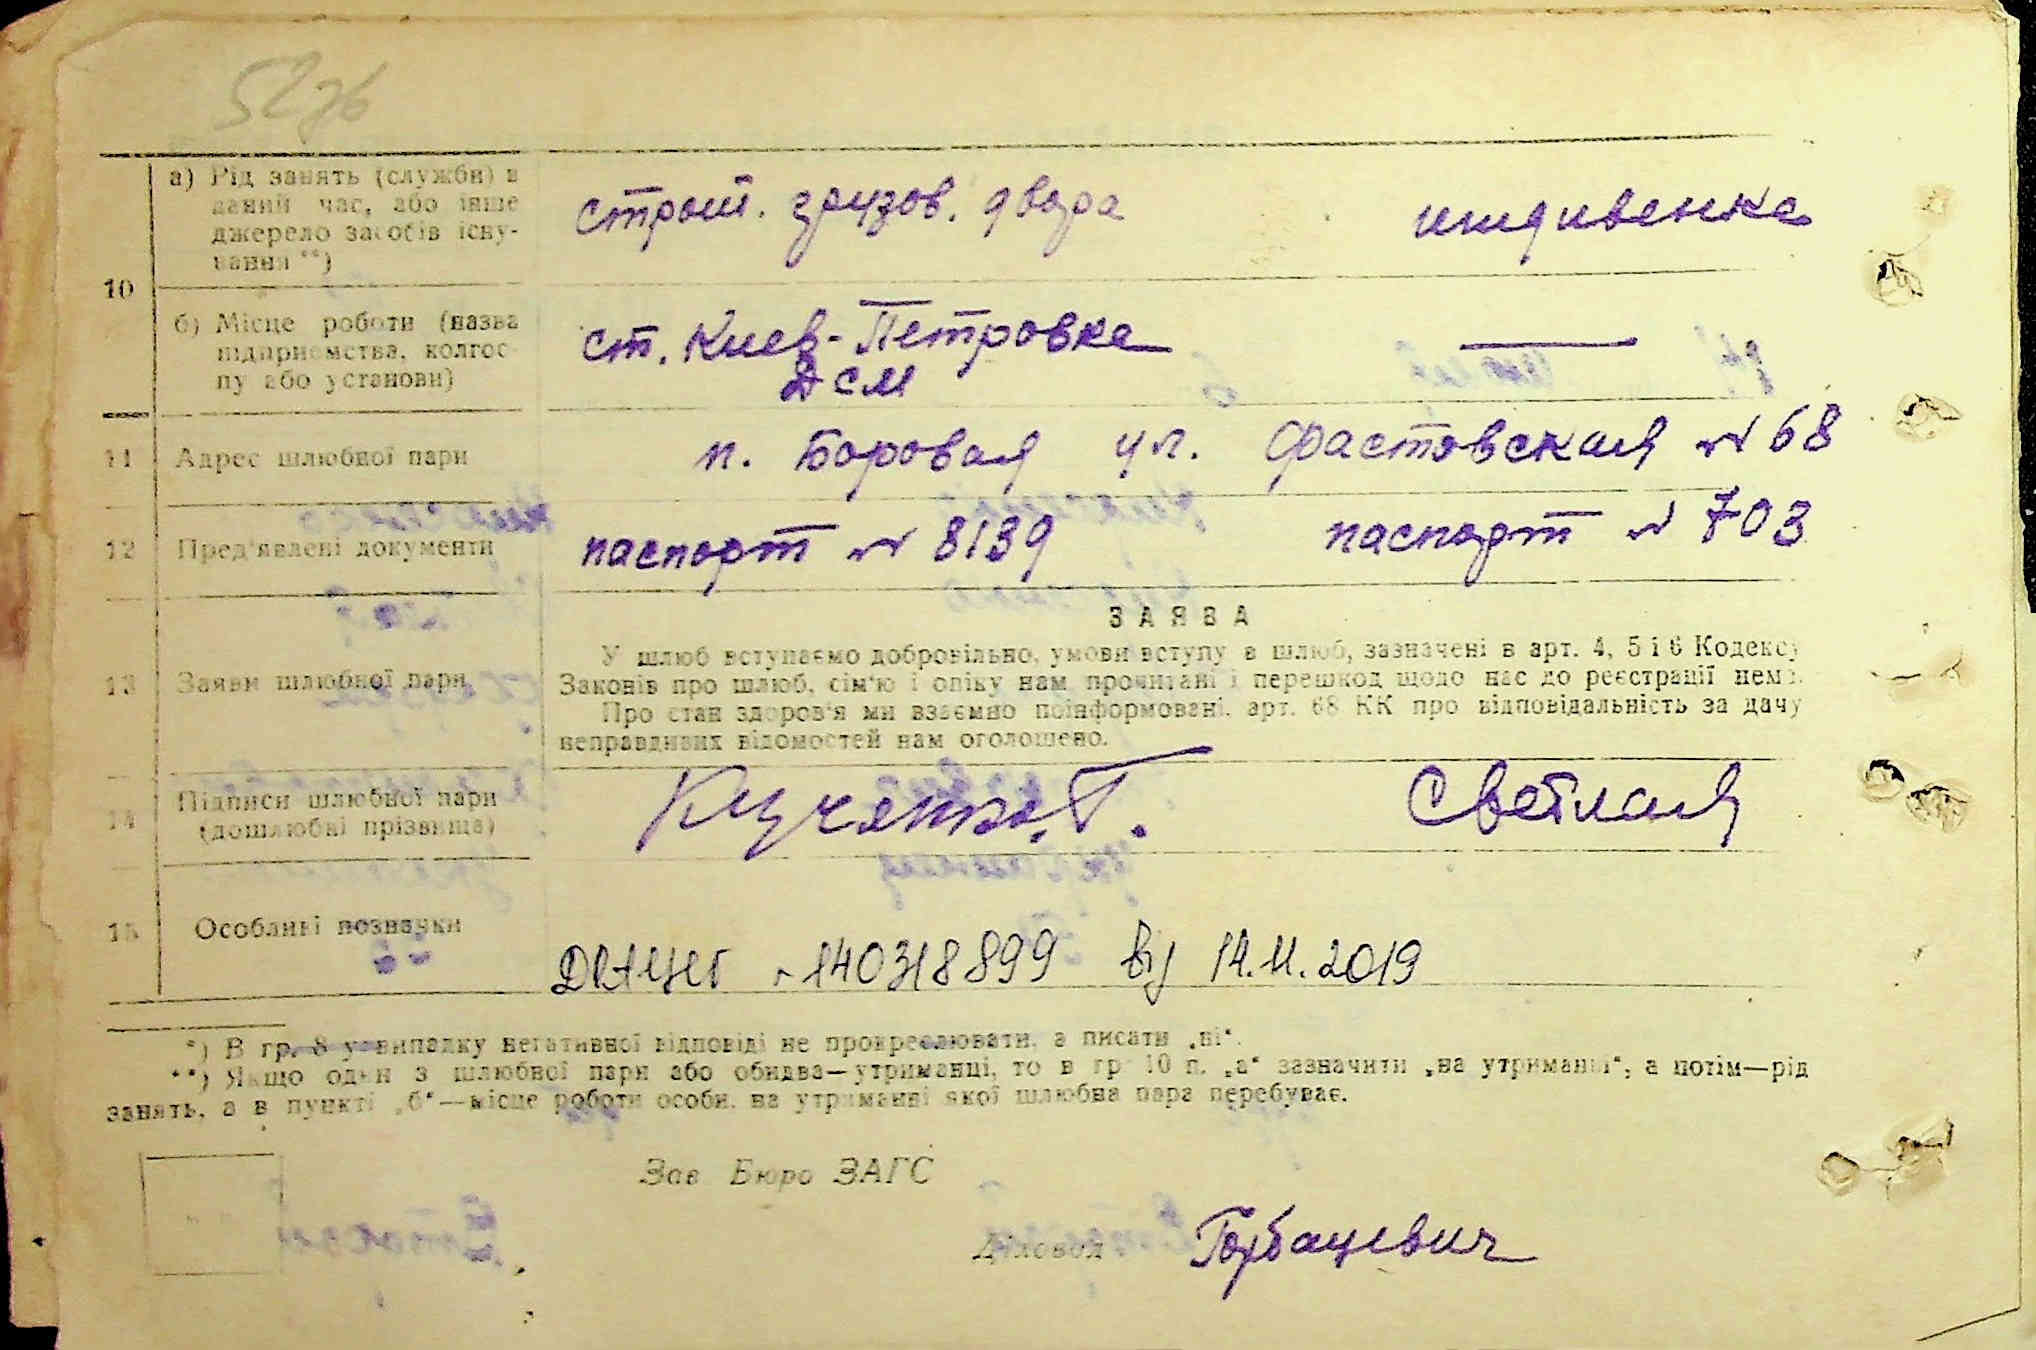 52зб
а) Рід занять (служби) в
даний час, або інше
джерело засобів існу-
вання **)
строит. грузов. двора
иждивенка
10
б) Місце роботи (назва
підприємства, колгос-
пу або установи)
ст. Киев-Петровка
ДСМ
—
11 Адрес шлюбної пари
п. Боровая ул. Фастовская № 68
12 Пред'явлені документи
паспорт № 8139
паспорт № 703
13 Заяви шлюбної пари
ЗАЯВА
У шлюб вступаємо добровільно, умови вступу в шлюб, зазначені в арт. 4, 5 і 6 Кодексу
Законів про шлюб, сім'ю і опіку нам прочитані і перешкод щодо нас до реєстрації нема.
Про стан здоров'я ми взаємно поінформовані, арт. 68 КК про відповідальність за дачу
неправдивих відомостей нам оголошено.
14 Підписи шлюбної пари
(дошлюбні прізвища)
Светлая
15 Особливі позначки
ДРАЦСГ 140318899 від 14.11.2019
*) В гр. 8 у випадку негативної відповіді не прокреслювати, а писати „ні“.
**) Якщо один з шлюбної пари або обидва—утриманці, то в гр. 10 п. „а“ зазначити „на утриманні“, а потім—рід
занять, а в пункті „б“—місце роботи особи, на утриманні якої шлюбна пара перебуває.
Зав Бюро ЗАГС
Діловод Горбацевич